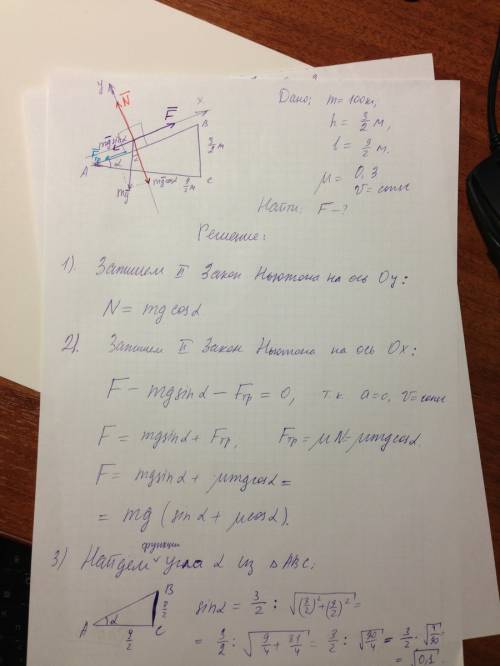 y
N̅
F̅
x
B
mgsinα
Fтр
α
A
C
mg̅
mgcosα
3/2 м
9/2 м
Дано: m = 100кг,
h = 3/2 м,
l = 9/2 м.
μ = 0,3
v = const
Найти: F - ?
Решение:
1). Запишем II Закон Ньютона на ось Oy:
N = mg cosα
2). Запишем II Закон Ньютона на ось Ox:
F - mgsinα - Fтр = 0, т.к. a=0, v=const
F = mgsinα + Fтр, Fтр = μN = μmgcosα
F = mgsinα + μmgcosα =
= mg (sinα + μcosα).
3) Найдем функции угла α из ΔABC:
B
3/2
A
α
C
9/2
sinα = 3/2 : √((3/2)²+(9/2)²) =
= 3/2 : √(9/4 + 81/4) = 3/2 : √(90/4) =
= √0,1